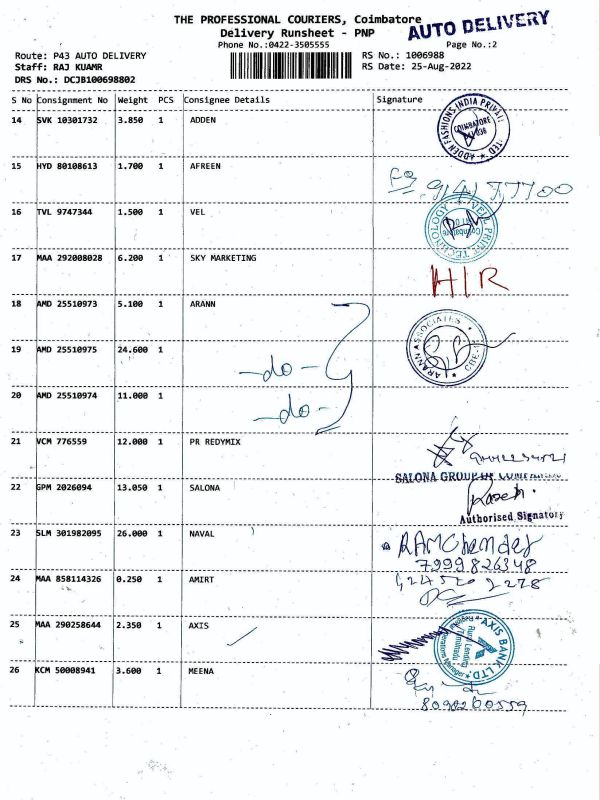 THE PROFESSIONAL COURIERS, Coimbatore
AUTO DELIVERY
Delivery Runsheet - PNP
Phone No.:0422-3505555 Page No.:2
Route: P43 AUTO DELIVERY RS No.: 1006988
Staff: RAJ KUAMR RS Date: 25-Aug-2022
DRS No.: DCJB100698802
S No Consignment No Weight PCS Consignee Details Signature
14 SVK 10301732 3.850 1 ADDEN
ADDEN FASHIONS INDIA COIMBATORE
15 HYD 80108613 1.700 1 AFREEN
16 TVL 9747344 1.500 1 VEL
VEL PRINT TECHNOLOGY Coimbatore
17 MAA 292008028 6.200 1 SKY MARKETING
H/R
18 AMD 25510973 5.100 1 ARANN
ARANN ASSOCIATES CBE
19 AMD 25510975 24.600 1
-do-
20 AMD 25510974 11.000 1
-do-
21 VCM 776559 12.000 1 PR REDYMIX
SALONA GROUP OF
22 GPM 2026094 13.050 1 SALONA
Authorised Signatory
23 SLM 301982095 26.000 1 NAVAL
RAMChander
7999826348
24 MAA 858114326 0.250 1 AMIRT
25 MAA 290258644 2.350 1 AXIS
AXIS BANK LTD.
26 KCM 50008941 3.600 1 MEENA